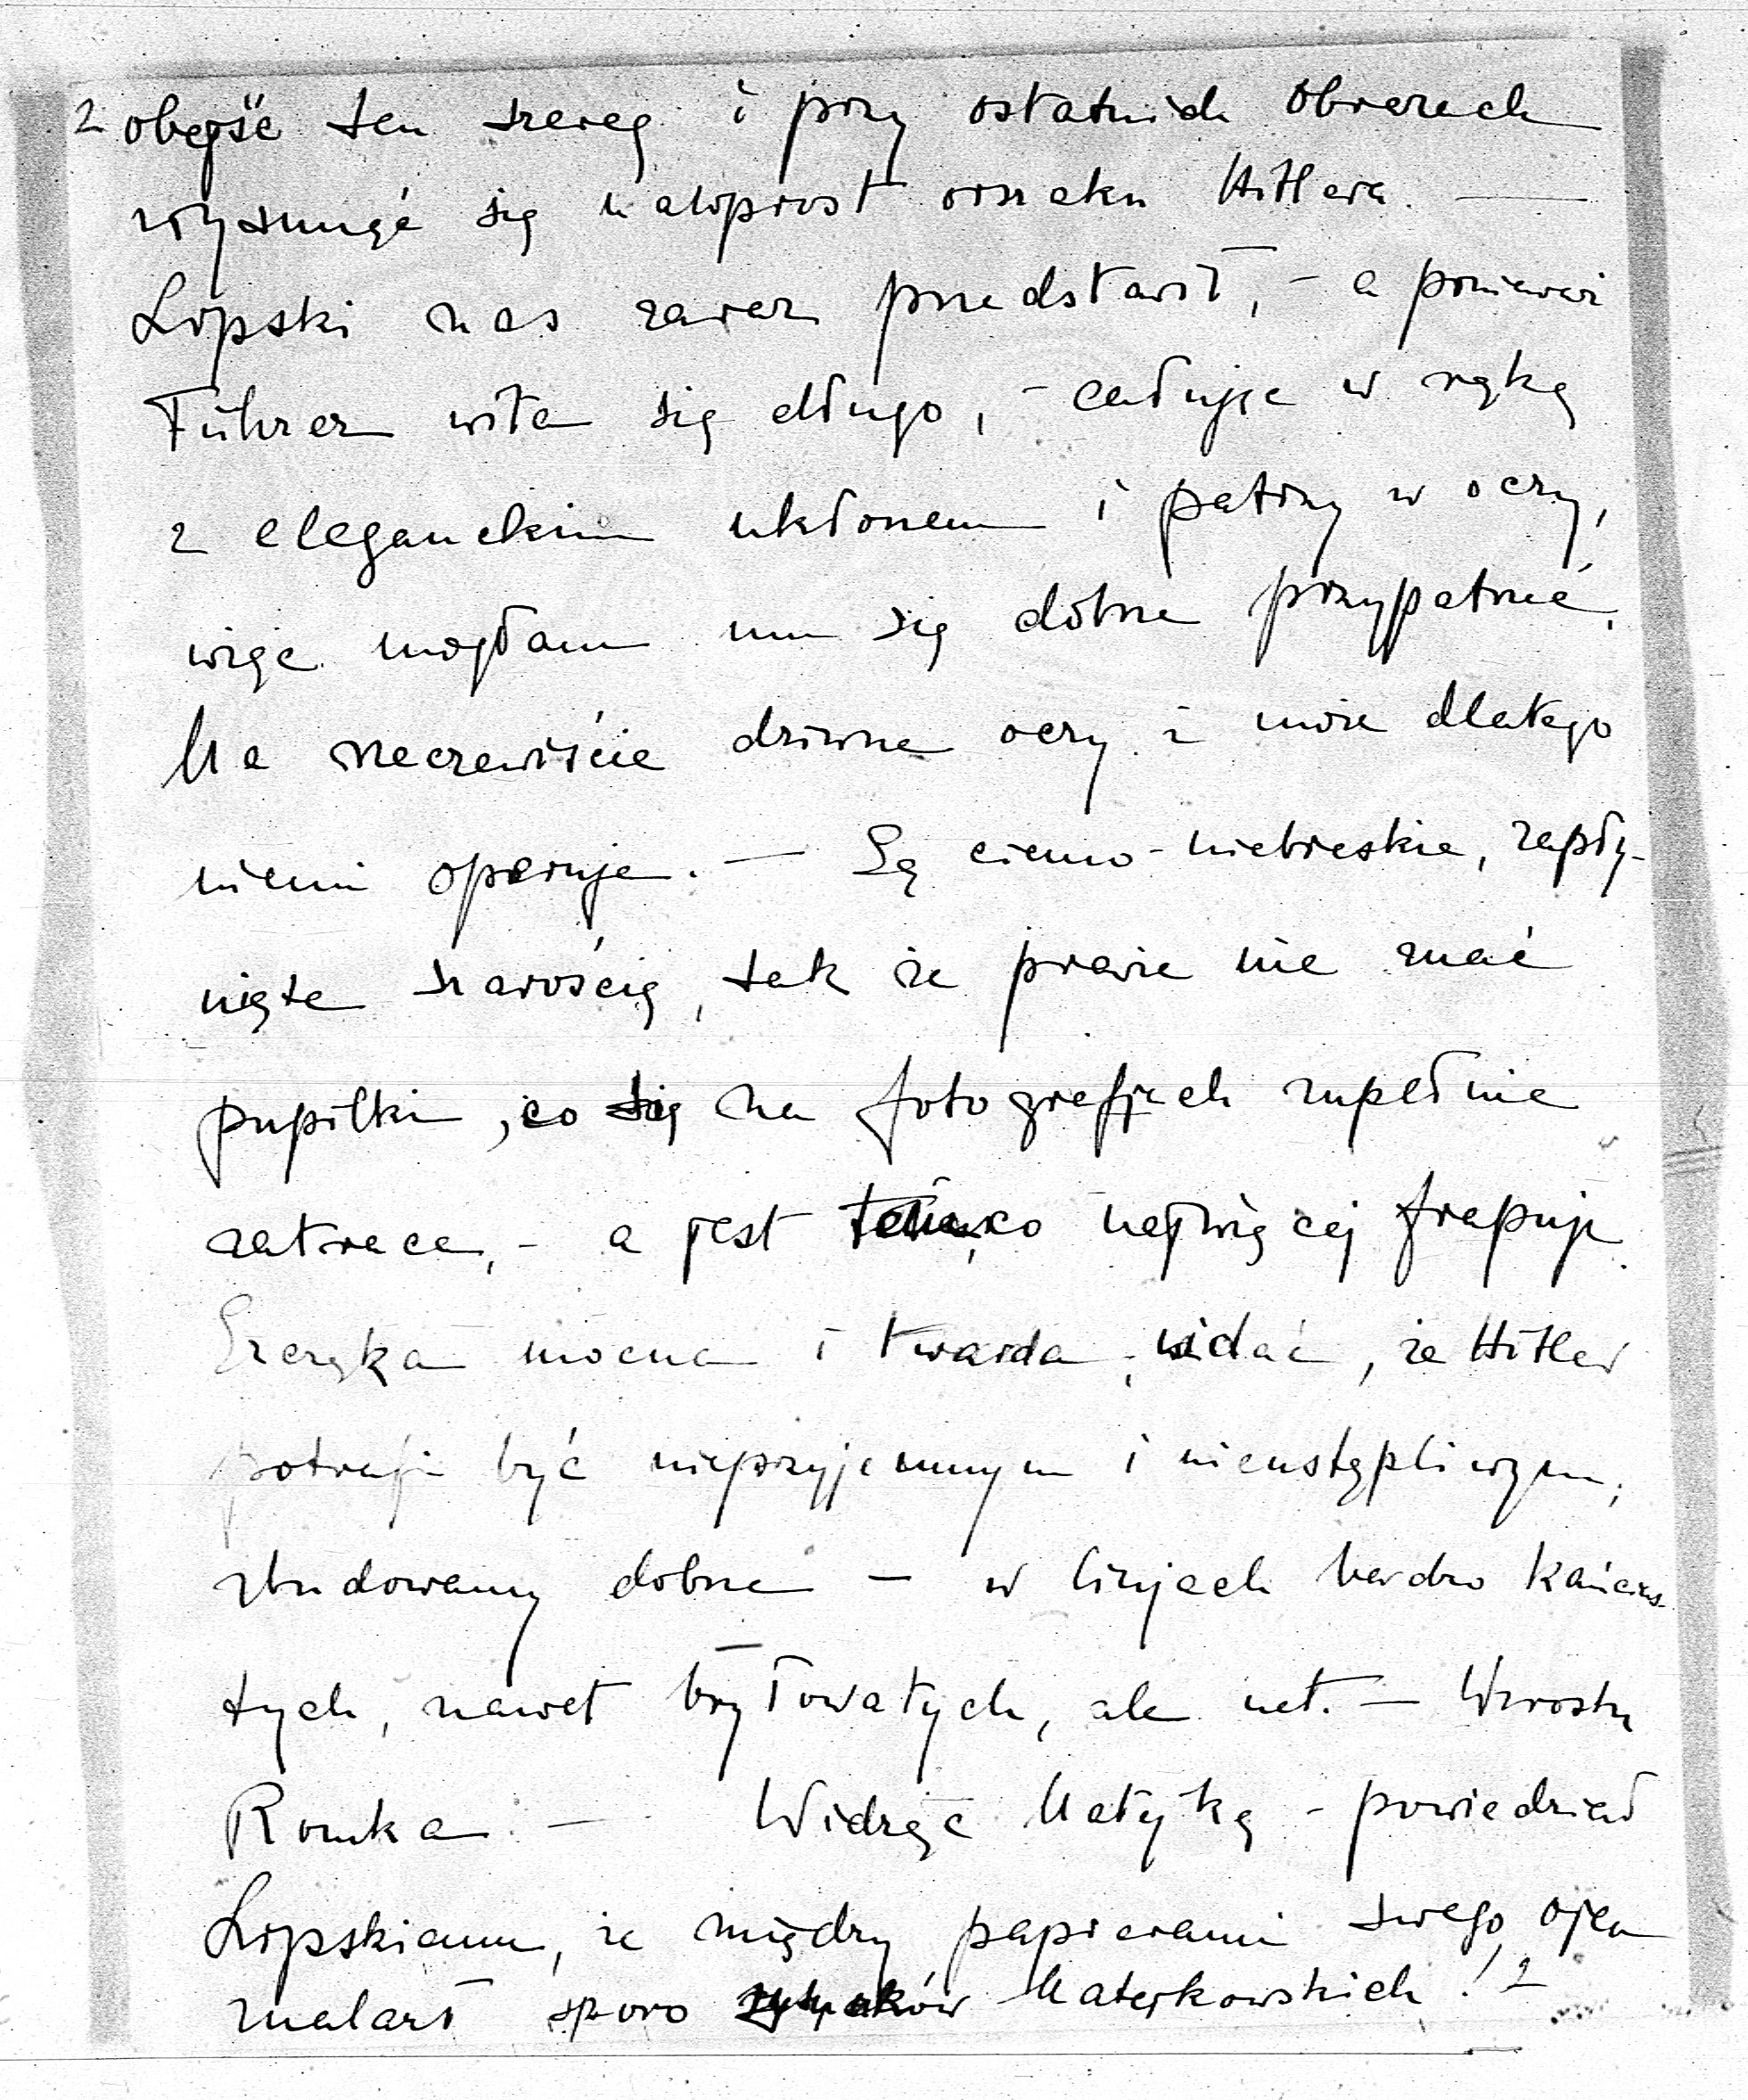 2 obejść ten szereg i przy ostatnich obrazach
wysunąć się nawprost orszaku Hitlera. —
Lipski nas zaraz przedstawił, – a ponieważ
Führer wita się długo, – całując w rękę
z eleganckim ukłonem i patrzy w oczy,
więc mogłam mu się dobrze przypatrzeć.
Ma rzeczewiście dziwne oczy i może dlatego
niemi operuje. — Są ciemo-niebieskie, zapły-
nięte szarością, tak że prawie nie znać
pupilki, co się na fotografjach zupełnie
zatraca, – a jest co najwięcej frapuje.
Szczęka mocna i twarda, widać, że Hitler
potrafi być nieprzyjemnym i nieustępliwym,
zbudowany dobrze – w linjach bardzo kańcias-
tych, nawet bryłowatych, ale net. — Wzrostu
Romka. — Widząc Matejkę – powiedział
Lipskiemu, że między papierami swego ojca
znalazł sporo Matejkowskich!